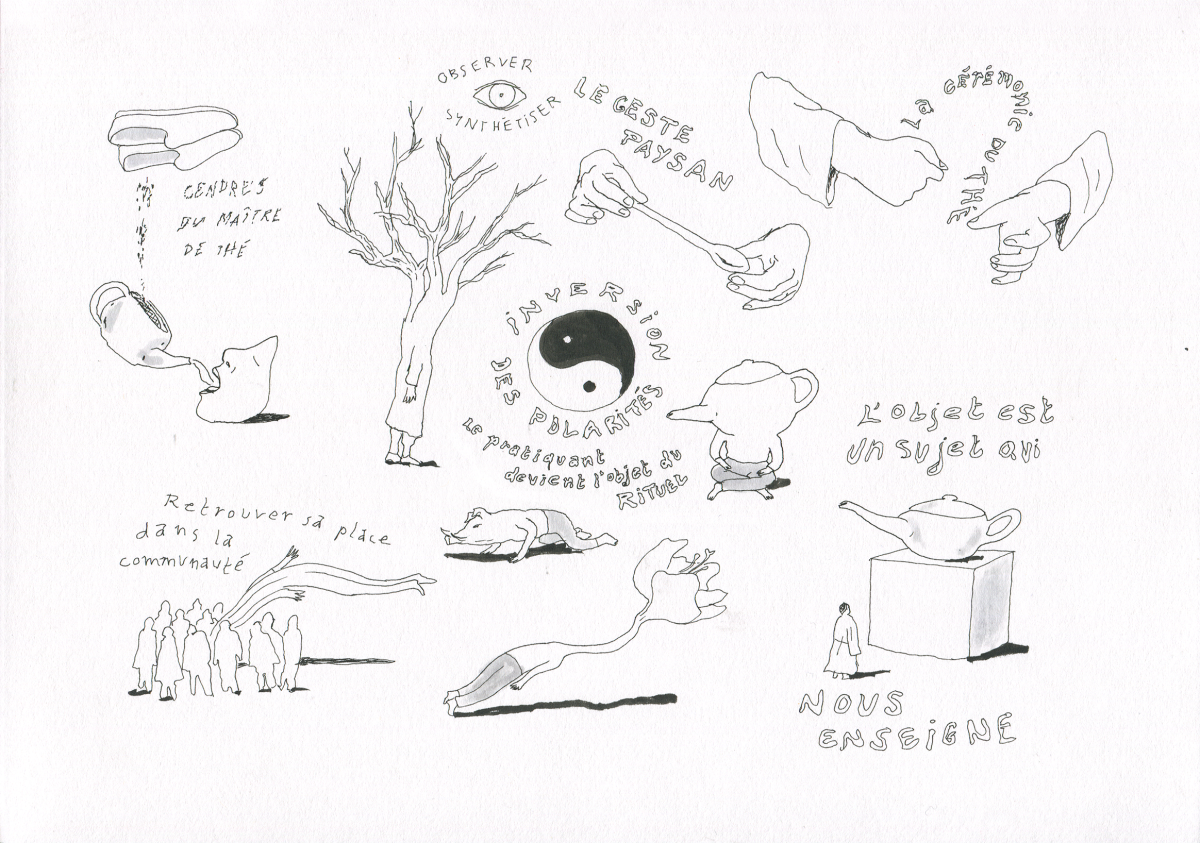 OBSERVER
SYNTHÉTISER
LE GESTE
PAYSAN
LA CÉRÉMONIC DU THÉ
CENDRES
DU MAÎTRE
DE THÉ
INVERSION
DES POLARITÉS
Le pratiquant
devient l'objet du
RITUEL
L'objet est
un sujet qui
NOUS
ENSEIGNE
Retrouver sa place
dans la
communauté